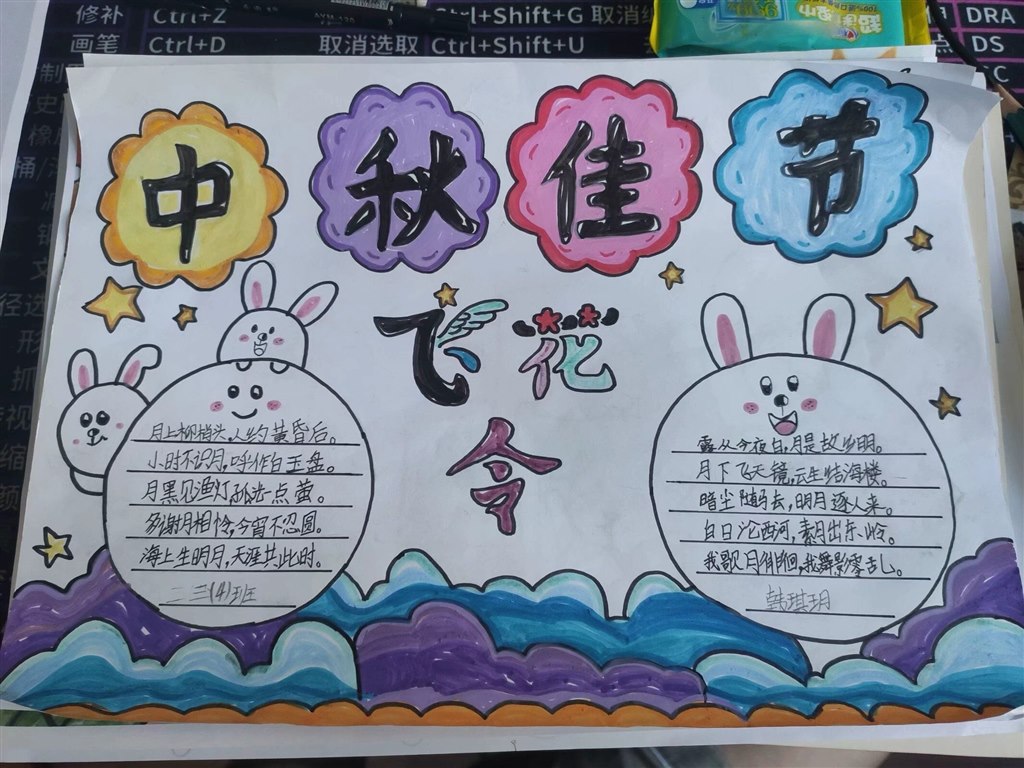 修补 Ctrl+Z
Ctrl+Shift+G 取消编
DRA
画笔 Ctrl+D
取消选取 Ctrl+Shift+U
DS
中秋佳节
飞花
令
月上柳梢头,人约黄昏后。
小时不识月,呼作白玉盘。
月黑见渔灯,孤光一点萤。
多谢月相怜,今宵不忍圆。
海上生明月,天涯共此时。
二三(4)班
露从今夜白,月是故乡明。
月下飞天镜,云生结海楼。
暗尘随马去,明月逐人来。
白日沦西河,素月出东岭。
我歌月徘徊,我舞影零乱。
韩琪玥